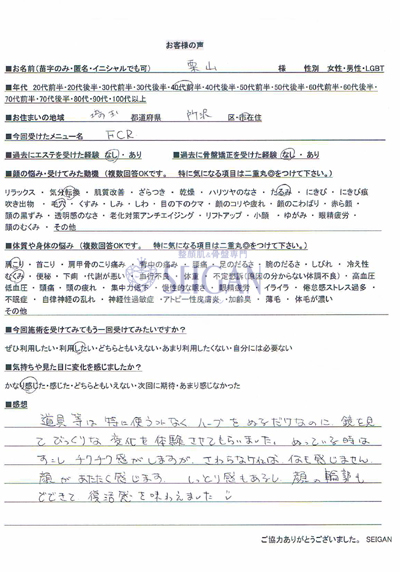 お客様の声
■お名前(苗字のみ・匿名・イニシャルでも可) 栗山 様 性別 女性・男性・LGBT
■年代 20代前半・20代後半・30代前半・30代後半・40代前半・40代後半・50代前半・50代後半・60代前半・60代後半・
70代前半・70代後半・80代・90代・100代以上
■お住まいの地域 埼玉 都道府県 所沢 区・市在住
■今回受けたメニュー名 FCR
■過去にエステを受けた経験 なし・あり ■過去に骨盤矯正を受けた経験 なし・あり
■顔の悩み・受けてみた動機(複数回答OKです。 特に気になる項目は二重丸◎をつけて下さい。)
リラックス ・ 気分転換 ・ 肌質改善 ・ ざらつき ・ 乾燥 ・ ハリツヤのなさ ・ たるみ ・ にきび ・ にきび痕
吹き出物 ・ 毛穴 ・ くすみ ・ しみ ・ しわ ・ 目の下のクマ ・ 顔のコリや疲れ ・ 顔のこわばり ・ 赤ら顔
頭の黒ずみ ・ 透明感のなさ ・ 老化対策アンチエイジング ・ リフトアップ ・ 小顔 ・ ゆがみ ・ 眼精疲労 ・
顔のむくみ ・ その他
■体質や身体の悩み (複数回答OKです。 特に気になる項目は二重丸◎をつけて下さい。)
肩こり ・ 首こり ・ 肩甲骨のこり痛み ・ 背中の痛み ・ 腰痛 ・ 足のだるさ ・ 腕のだるさ ・ しびれ ・ 冷え性
むくみ ・ 便秘 ・ 下痢 ・ 代謝が悪い ・ ・ 体重 ・ 不定愁訴(原因の分からない体調不良) ・ 高血圧
低血圧 ・ 頭痛 ・ 頭の疲れ ・ 集中力低下 ・ 慢性的な疲れ ・ 眼精疲労 ・ イライラ ・ 倦怠感ストレス過多 ・
不眠症 ・ 自律神経の乱れ ・ 神経性過敏症 ・ アトピー性皮膚炎 ・ 加齢臭 ・ 薄毛 ・ 体毛が濃い
その他
整顔肌&骨盤専門
SEIGAN
■今回施術を受けてみてもう一回受けてみたいですか?
ぜひ利用したい・利用したい・どちらともいえない・あまり利用したくない・自分には必要ない
■気持ちや見た目に変化を感じましたか?
かなり感じた・感じた・どちらともいえない・次回に期待・あまり感じなかった
■感想
道具等は特に使うでなく ハーブをぬるだけなのに、鏡を見
てびっくりな変化を体験させてもらいました。ぬっている時は
すこしチクチク感がしますが、さわらなければ 何も感じません
顔があたたく感じます。 しっとり感もあるし 顔の輪郭も
でてきて 復活感を味わえました
ご協力ありがとうございました。 SEIGAN